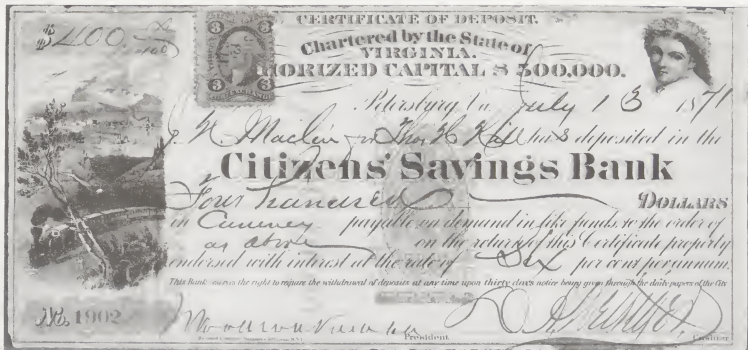 $400. 00/100
CERTIFICATE OF DEPOSIT.
Chartered by the State of
VIRGINIA.
HORIZED CAPITAL $500,000.
3 3
3 3
Petersburg, Va July 13 1871
J. N. Maclin for Thos H Hill has deposited in the
Citizens' Savings Bank
Four Hundred DOLLARS
in Currency payable on demand in like funds, to the order of
as above on the return of this Certificate properly
endorsed with interest at the rate of Six per cent per annum.
This Bank reserves the right to require the withdrawal of deposits at any time upon thirty days notice being given through the daily papers of the City
No. 1902
President
Cashier